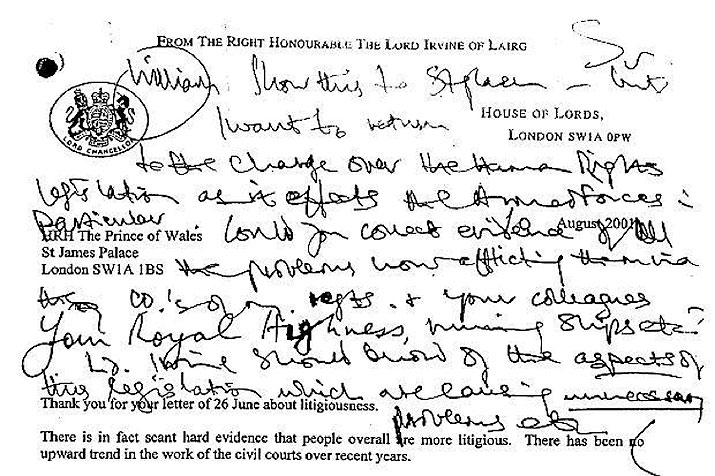 FROM THE RIGHT HONOURABLE THE LORD IRVINE OF LAIRG
William Show this to Stephen – but
I want to return
HOUSE OF LORDS,
LONDON SW1A 0PW
LORD CHANCELLOR
to the charge over the Human Rights
legislation as it effects the Armed Forces in
particular
August 2001
HRH The Prince of Wales
Could you collect evidence of all
St James Palace
London SW1A 1BS
the problems now afflicting them via
the CO.'s of my regts. & your colleagues
Your Royal Highness, running ships etc?
Ld. Irvine should know of the aspects of
this legislation which are causing unnecessary
Thank you for your letter of 26 June about litigiousness.
problems etc
There is in fact scant hard evidence that people overall are more litigious. There has been no
upward trend in the work of the civil courts over recent years.